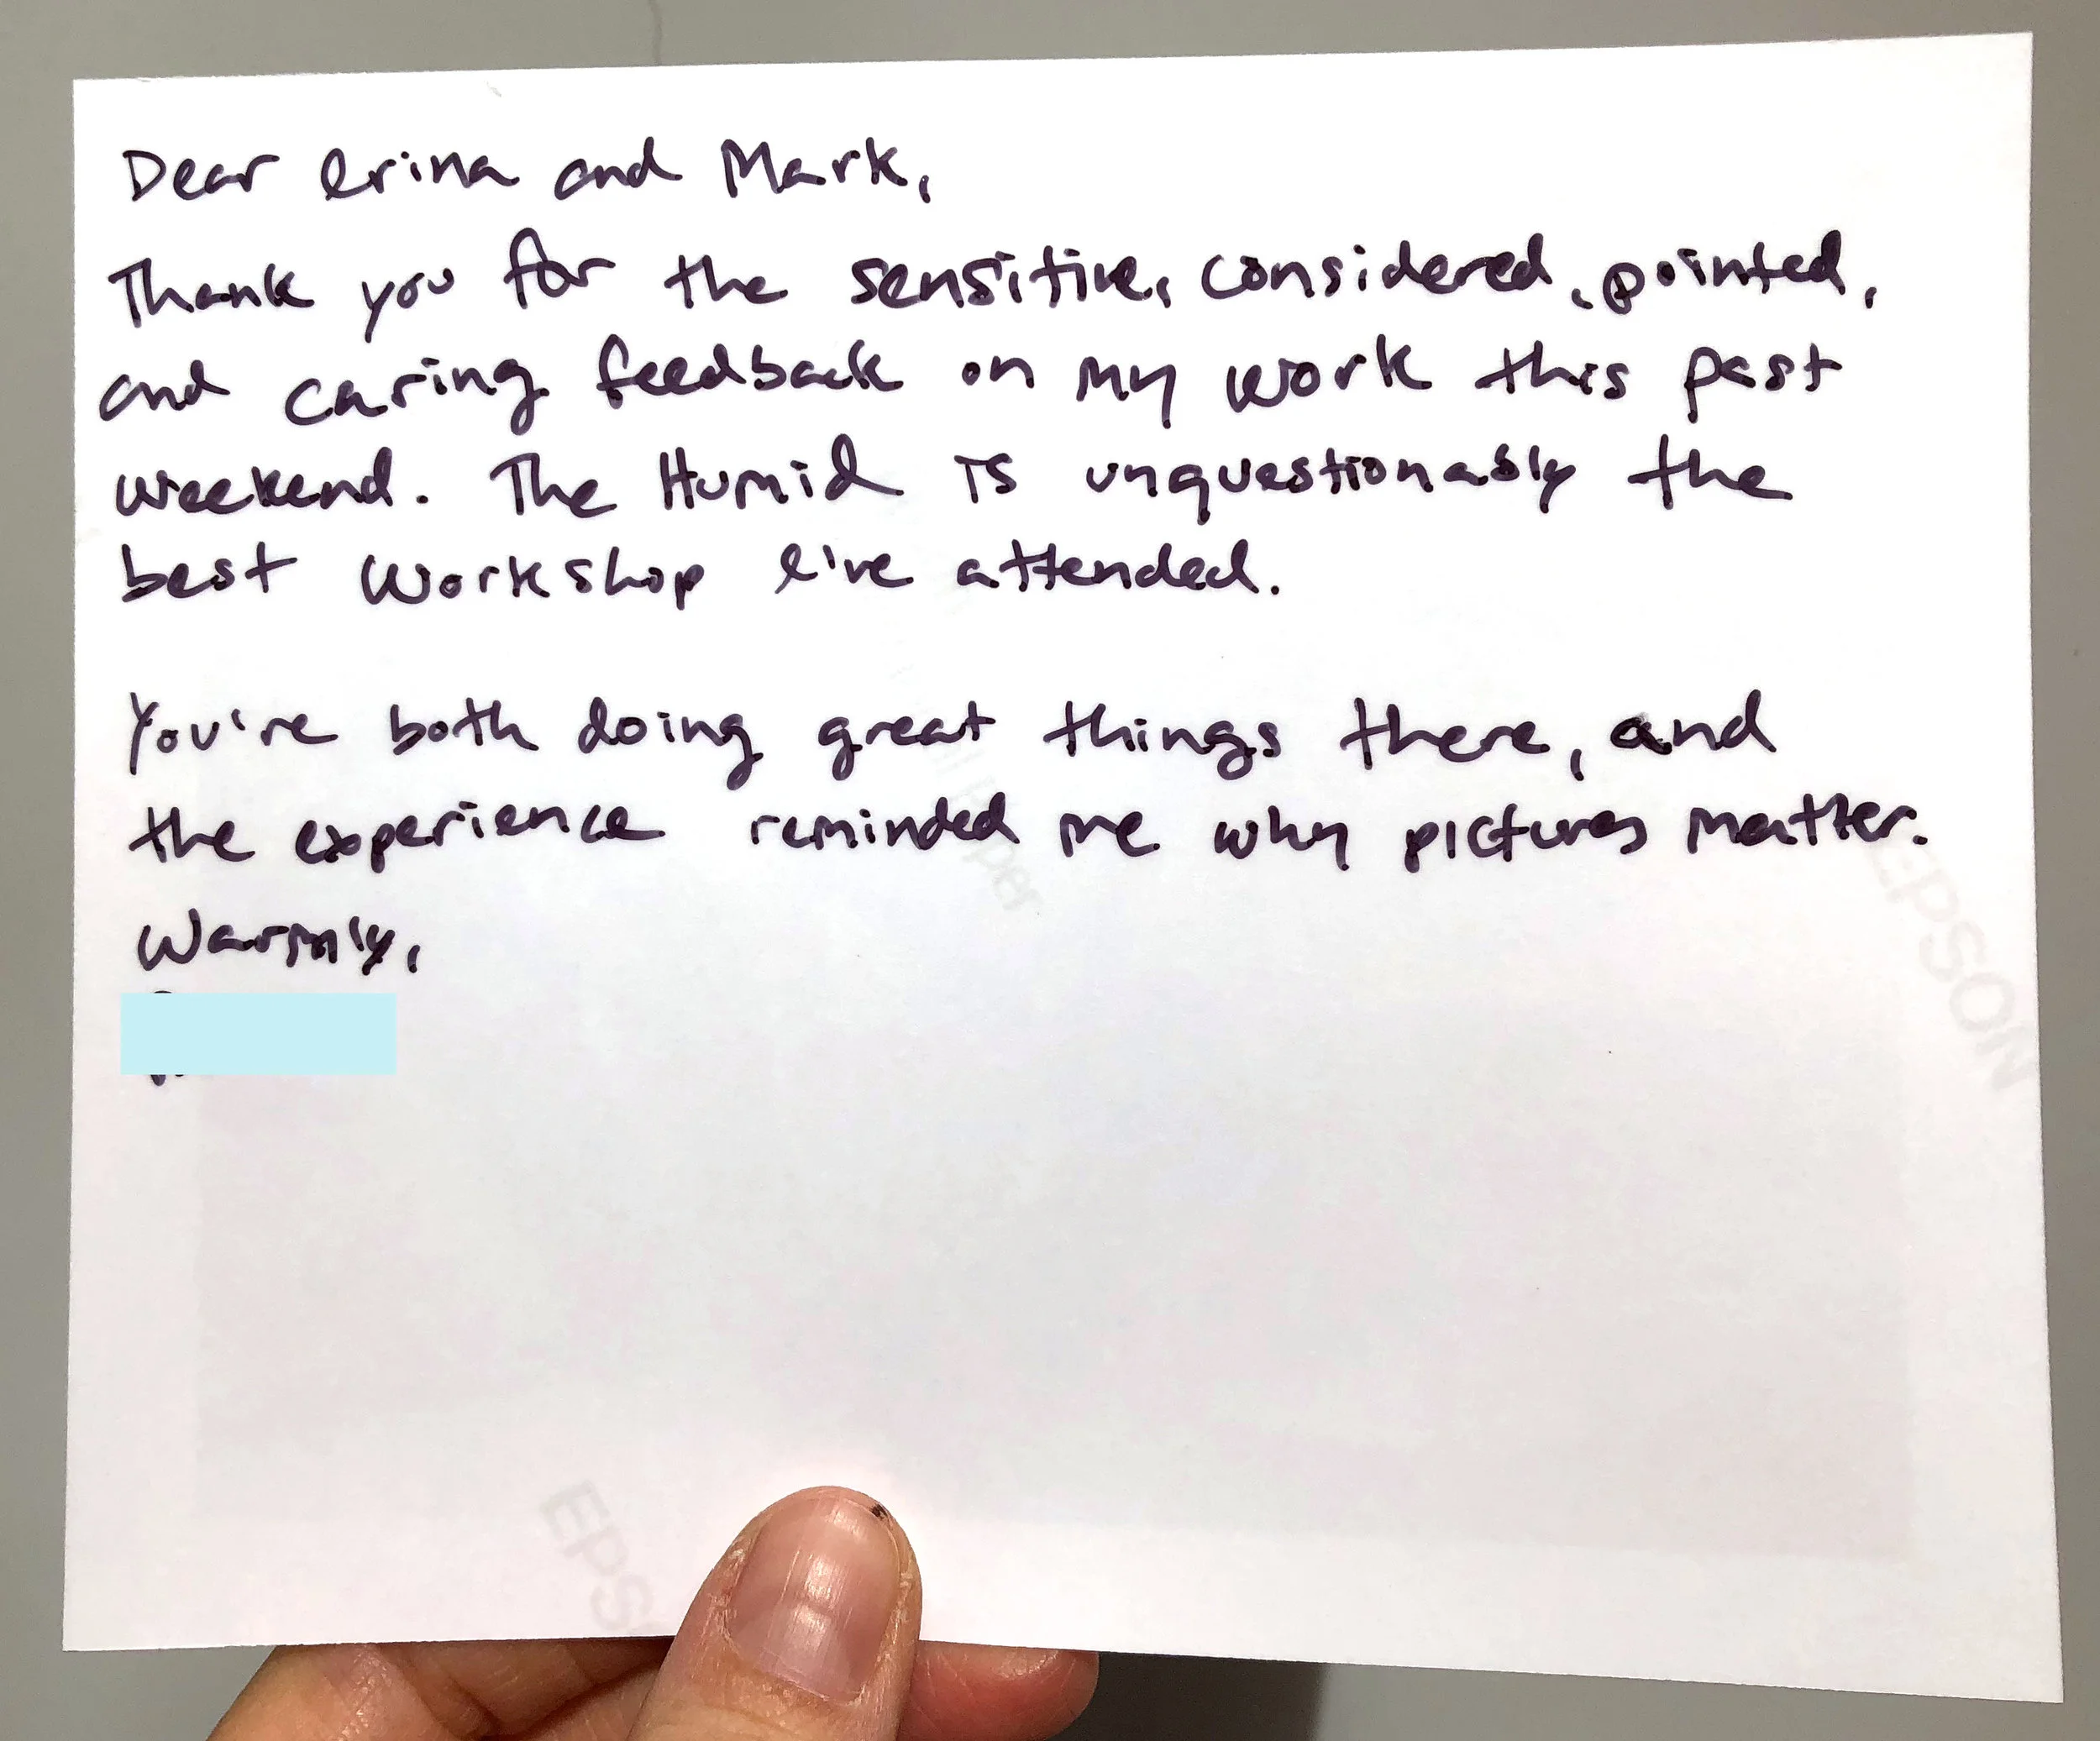 Dear Irina and Mark,
Thank you for the sensitive, considered, pointed,
and caring feedback on my work this past
weekend. The Humid is unquestionably the
best workshop I've attended.
You're both doing great things there, and
the experience reminded me why pictures matter.
Warmly,
EPSON
EPS